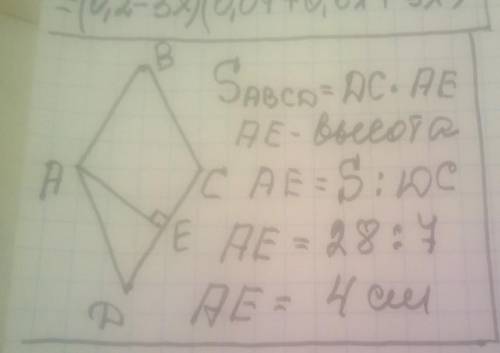 =(0,2-3x)(0,04+0,6x+9x
B
A
C
E
D
S ABCD = DC · AE
AE - высота
AE = S : DC
AE = 28 : 7
AE = 4 см